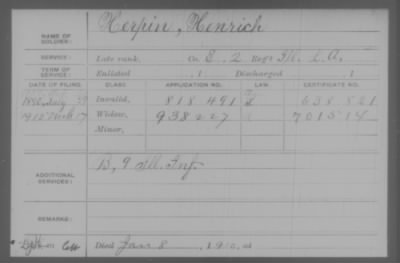 NAME OF SOLDIER: Herpin, Henrich
SERVICE: Late rank, Co. E, 2 Reg't Ill. L.A.
TERM OF SERVICE: Enlisted , 1 Discharged , 1
DATE OF FILING. CLASS. APPLICATION NO. LAW. CERTIFICATE NO.
1890 July Invalid, 818 491 638 821
Widow, 938227
Minor,
ADDITIONAL SERVICES: B, 9 Ill. Inf.
REMARKS:
Died Jan 8, 191 , at